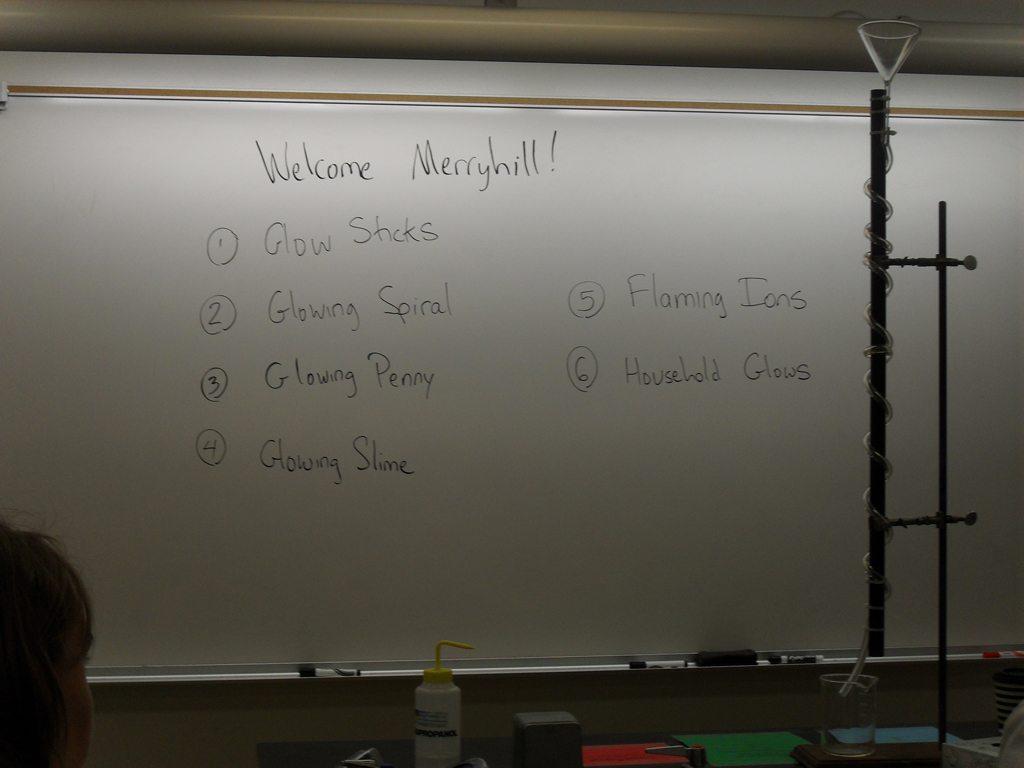 Welcome Merryhill!
1 Glow Sticks
2 Glowing Spiral
3 Glowing Penny
4 Glowing Slime
5 Flaming Ions
6 Household Glows